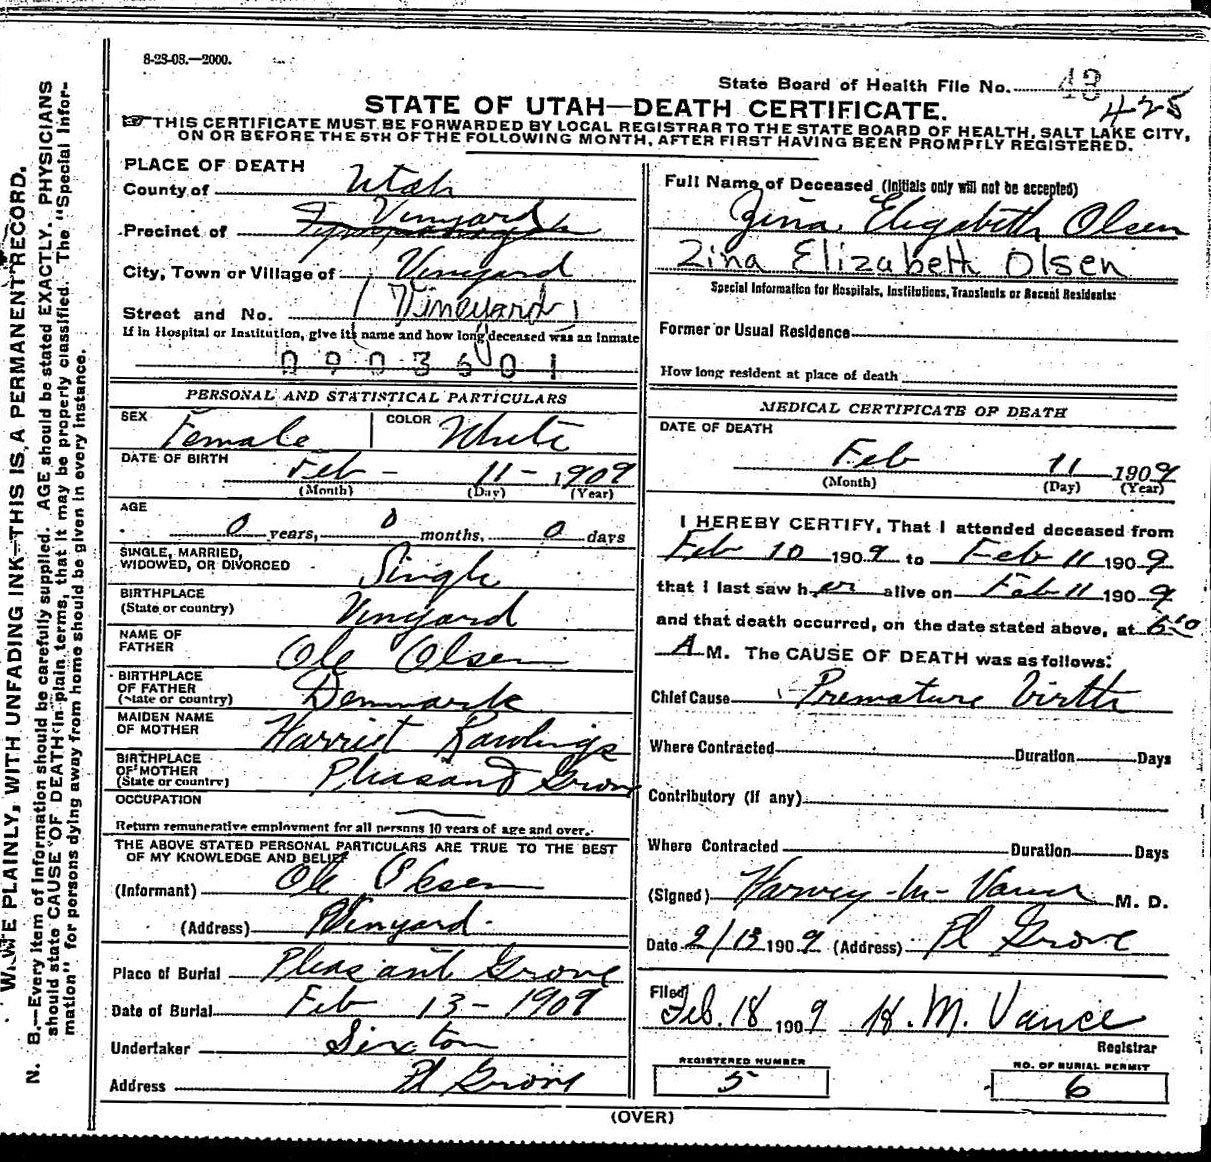 8-23-08.—2000.
State Board of Health File No. 43
425
STATE OF UTAH—DEATH CERTIFICATE.
☞THIS CERTIFICATE MUST BE FORWARDED BY LOCAL REGISTRAR TO THE STATE BOARD OF HEALTH, SALT LAKE CITY,
ON OR BEFORE THE 5TH OF THE FOLLOWING MONTH, AFTER FIRST HAVING BEEN PROMPTLY REGISTERED.
WRITE PLAINLY, WITH UNFADING INK—THIS IS A PERMANENT RECORD.
N. B.—Every item of Information should be carefully supplied. AGE should be stated EXACTLY. PHYSICIANS
should state CAUSE OF DEATH in plain terms, that it may be properly classified. The "Special Infor-
mation" for persons dying away from home should be given in every instance.
PLACE OF DEATH
County of Utah
Precinct of Vinyard
City, Town or Village of Vinyard
Street and No. (Vineyard)
If in Hospital or Institution, give its name and how long deceased was an Inmate
0903601
PERSONAL AND STATISTICAL PARTICULARS
SEX Female COLOR White
DATE OF BIRTH Feb - 11 - 1909
(Month) (Day) (Year)
AGE
0 years, 0 months, 0 days
SINGLE, MARRIED,
WIDOWED, OR DIVORCED Single
BIRTHPLACE
(State or country) Vinyard
NAME OF
FATHER Ole Olsen
BIRTHPLACE
OF FATHER
(State or country) Denmark
MAIDEN NAME
OF MOTHER Harriet Rawlings
BIRTHPLACE
OF MOTHER
(State or country) Pleasant Grove
OCCUPATION
Return remunerative employment for all persons 10 years of age and over.
THE ABOVE STATED PERSONAL PARTICULARS ARE TRUE TO THE BEST
OF MY KNOWLEDGE AND BELIEF
(Informant) Ole Olsen
(Address) Vinyard.
Place of Burial Pleasant Grove
Date of Burial Feb 13 - 1909
Undertaker Sexton
Address Pl Grove
Full Name of Deceased (Initials only will not be accepted)
Zina Elizabeth Olsen
Zina Elizabeth Olsen
Special Information for Hospitals, Institutions, Transients or Recent Residents:
Former or Usual Residence
How long resident at place of death
MEDICAL CERTIFICATE OF DEATH
DATE OF DEATH
Feb 11 1909
(Month) (Day) (Year)
I HEREBY CERTIFY, That I attended deceased from
Feb 10 1909 to Feb 11 1909
that I last saw her alive on Feb 11 1909
and that death occurred, on the date stated above, at 6:10
A M. The CAUSE OF DEATH was as follows:
Chief Cause Premature Birth
Where Contracted Duration Days
Contributory (if any)
Where Contracted Duration Days
(Signed) Harvey M Vance M. D.
Date 2/13 1909 (Address) Pl Grove
Filed Feb. 18 1909 H. M. Vance
Registrar
REGISTERED NUMBER
5
NO. OF BURIAL PERMIT
6
(OVER)